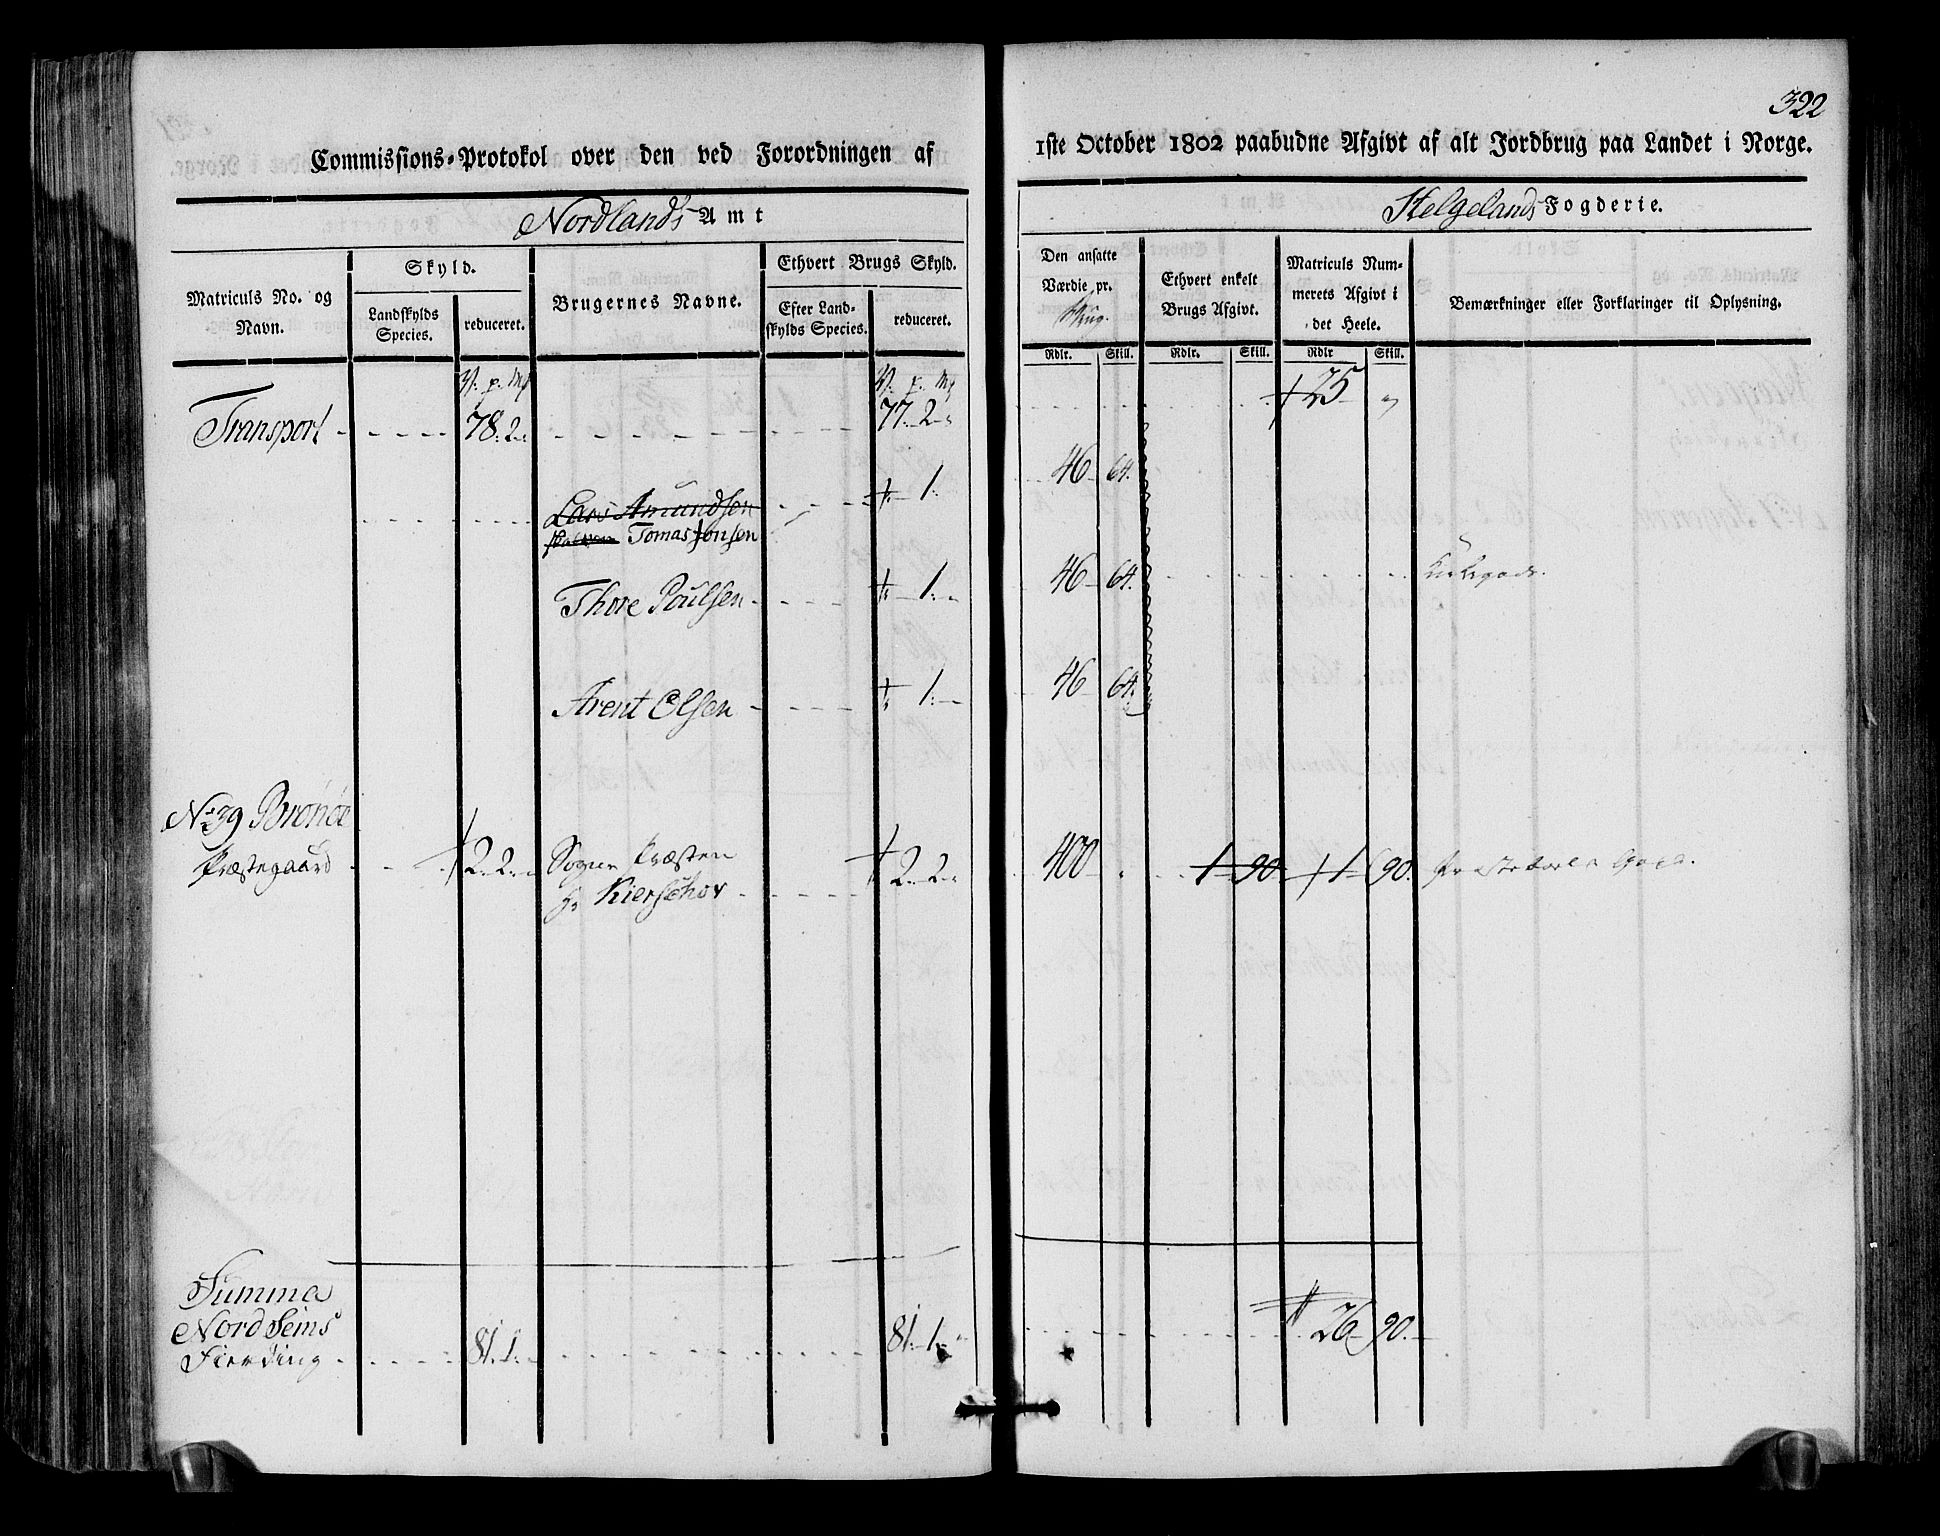 322
Commissions-Protokol over den ved Forordningen af
1ste October 1802 paabudne Afgivt af alt Jordbrug paa Landet i Norge.
Nordlands Amt
Helgelands Fogderie.
Matriculs No. og Navn.
Skyld.
Landskylds Species.
reduceret.
Brugernes Navne.
Ethvert Brugs Skyld.
Efter Landskylds Species.
reduceret.
Den ansatte Værdie pr.
Ethvert enkelt Brugs Afgivt.
Matriculs Nummerets Afgivt i det Heele.
Bemærkninger eller Forklaringer til Oplysning.
Rdlr. Skill. Rdlr. Skill. Rdlr Skill.
Transport 78. 2. 77. 2. 25
Lars Amundsen 1. 46 64.
Tomas Jonsen
Thore Poulsen 1. 46 64.
Arent Olsen 1. 46 64.
No 39 Brönöe
Præstegaard 2. 2. Sogne Præsten 2. 2. 400 1 90 1 90.
Hr Kierschov
Summa
Nord Sems
Fierding 81. 1. 81. 1. 26 90.